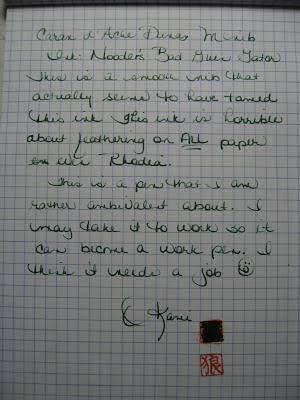 Caran d'Ache Dunas M nib
Ink: Noodler's Bad Green Gator
This is a smooth nib that
actually seems to have tamed
this ink. This ink is horrible
about feathering on ALL paper
Rhodia.
This is a pen that I am
rather ambivalent about. I
may take it to work so it
can become a work pen. I
think it needs a job ☺
狼